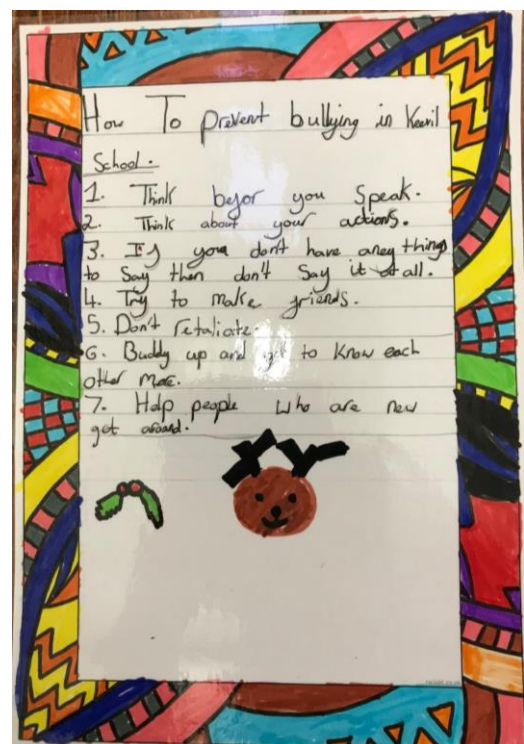 How To prevent bullying in Keevil
School.
1. Think befor you Speak.
2. Think about your actions.
3. If you don't have aney things
to Say then don't Say it at all.
4. Try to make friends.
5. Don't retaliate.
6. Buddy up and get to know each
other more.
7. Help people who are new
get around.